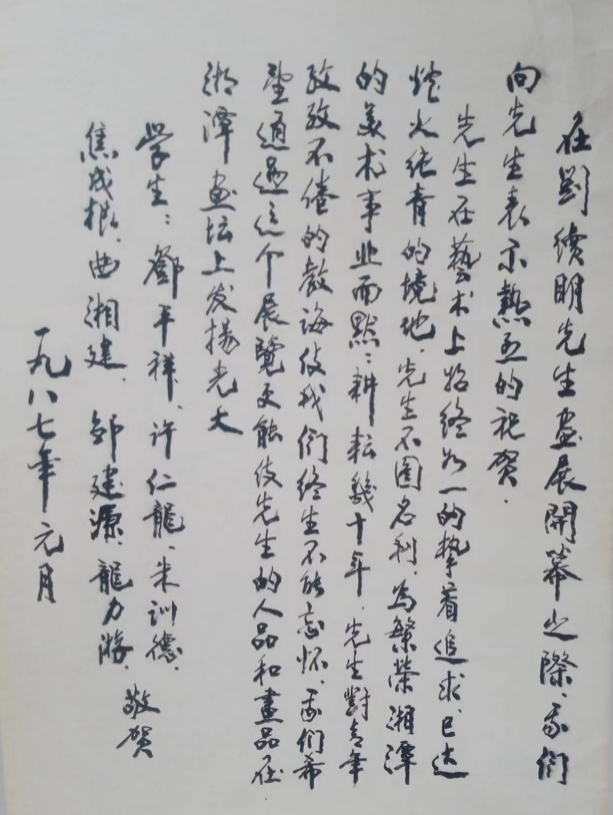 在劉續明先生畫展開幕之際、我们
向先生表示熱烈的祝贺.
先生在藝术上始终如一的挚着追求、已达
炉火纯青的境地、先生不图名利、為繁榮湘潭
的美术事业而默:耕耘幾十年、先生對青年
孜孜不倦的教诲使我们终生不能忘怀、我们希
望通过这个展覽更能使先生的人品和畫品在
湘潭画坛上发揚光大
学生:鄧平祥、许仁龍、朱训德、
焦成根、曲湘建、邹建源、龍力游、敬贺
一九八七年元月